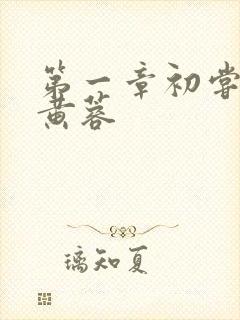 第一章初尝
黄蓉
璃知夏